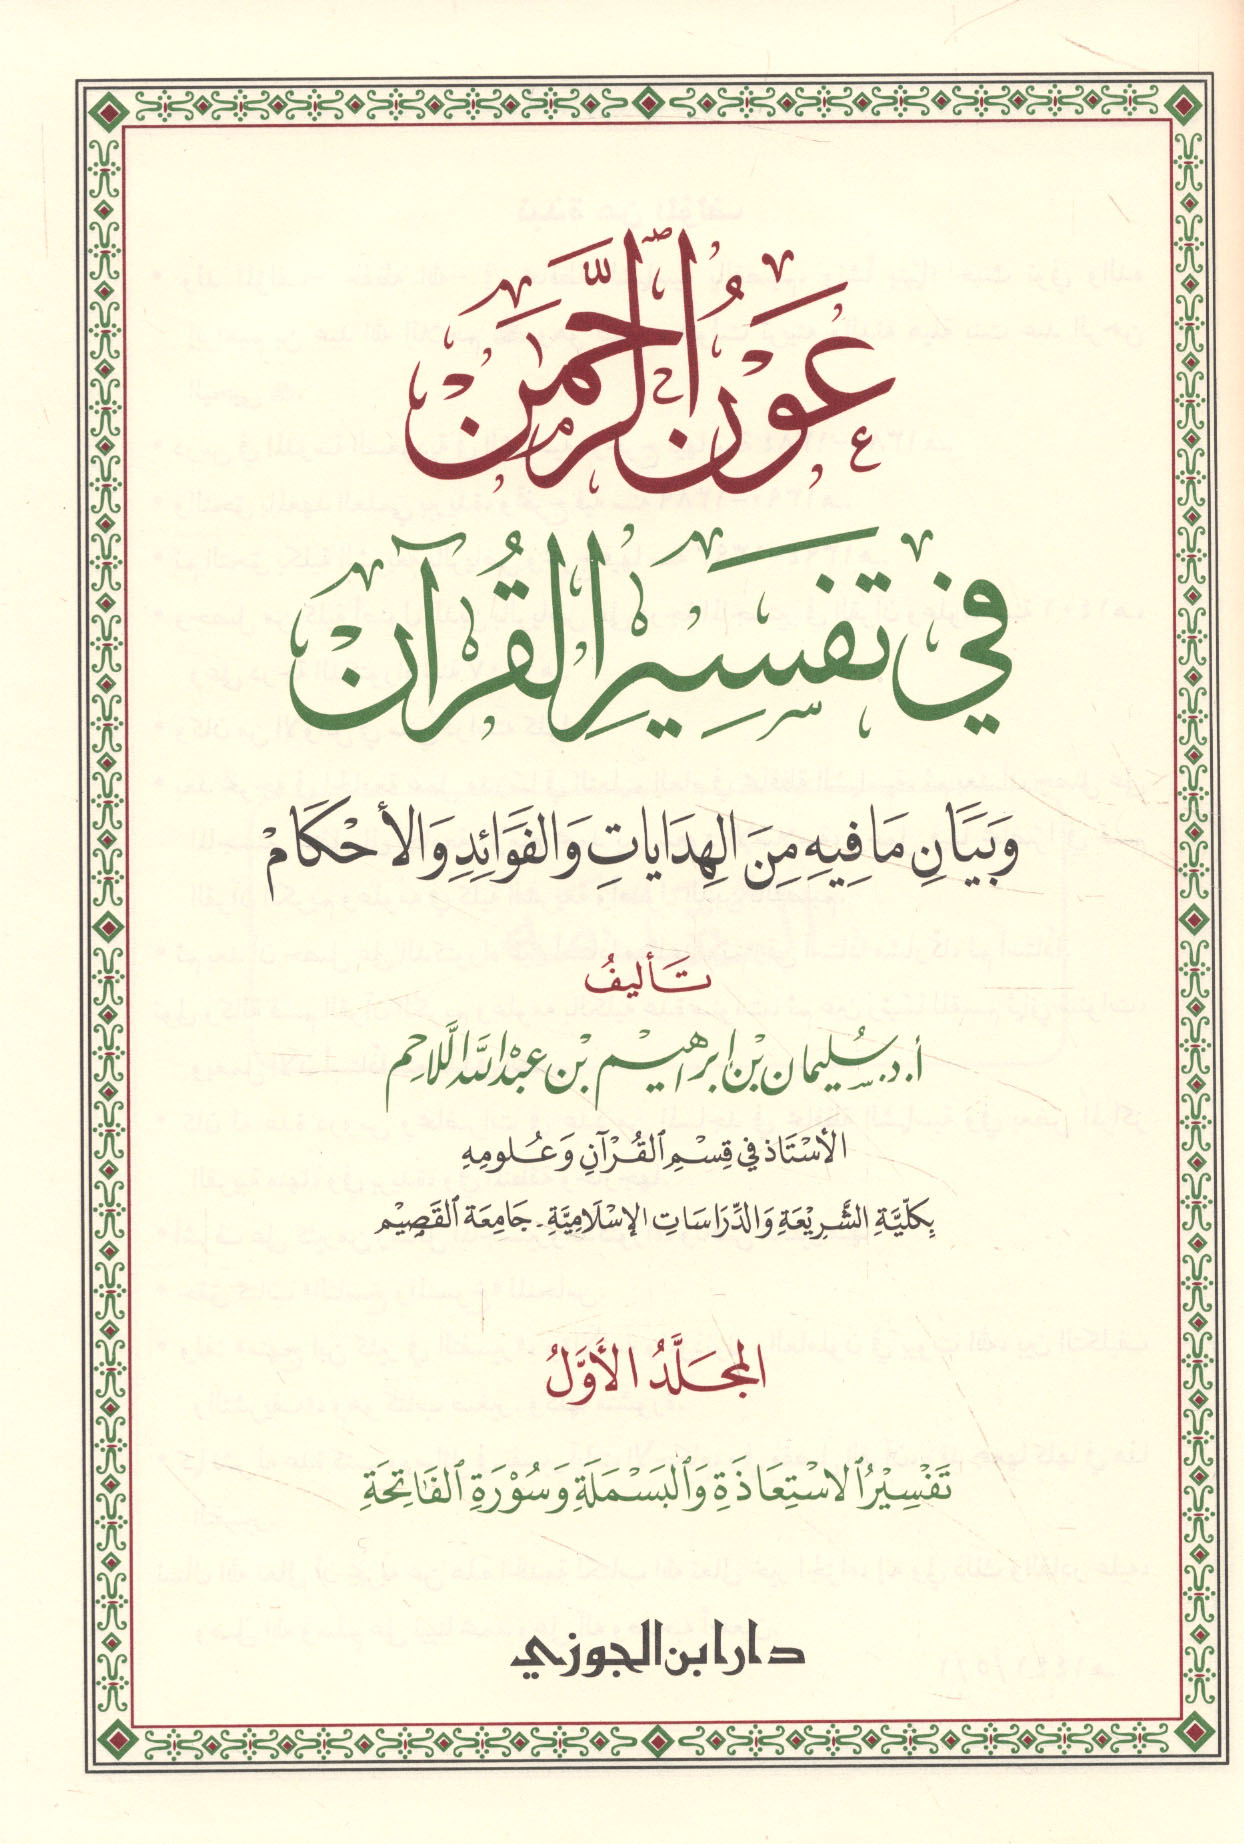 عَوْنُ الرَّحْمَنِ
فِي تَفْسِيرِ القُرْآنِ
وَبَيَانِ مَا فِيهِ مِنَ الهِدَايَاتِ وَالفَوَائِدِ وَالأَحْكَامْ
تَأليفُ
أ.د. سُليمان بن إبراهيم بن عبدالله اللَّاحِم
الأسْتَاذ في قِسْمِ القُرْآنِ وَعُلومِهِ
بِكليَّةِ الشَّرِيعَةِ وَالدِّرَاسَاتِ الإسْلَامِيَّةِ - جَامِعَة القَصِيْم
المجَلَّدُ الأَوَّلُ
تَفْسِيْرُ الاسْتِعَاذَةِ وَالبَسْمَلَةِ وَسُوْرَةِ الفَاتِحَةِ
دار ابن الجوزي